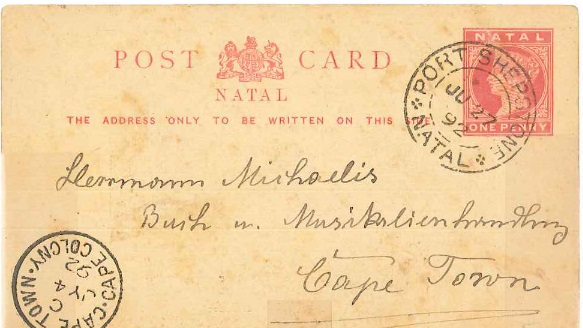 POST CARD
NATAL
THE ADDRESS ONLY TO BE WRITTEN ON THIS
NATAL
ONE PENNY
PORT SHEPSTONE
JU 27
92
NATAL
Herrmann Michaelis
Buch u. Musikalienhandlung
Cape Town
CAPE TOWN · CAPE COLONY
C
JY 4
92